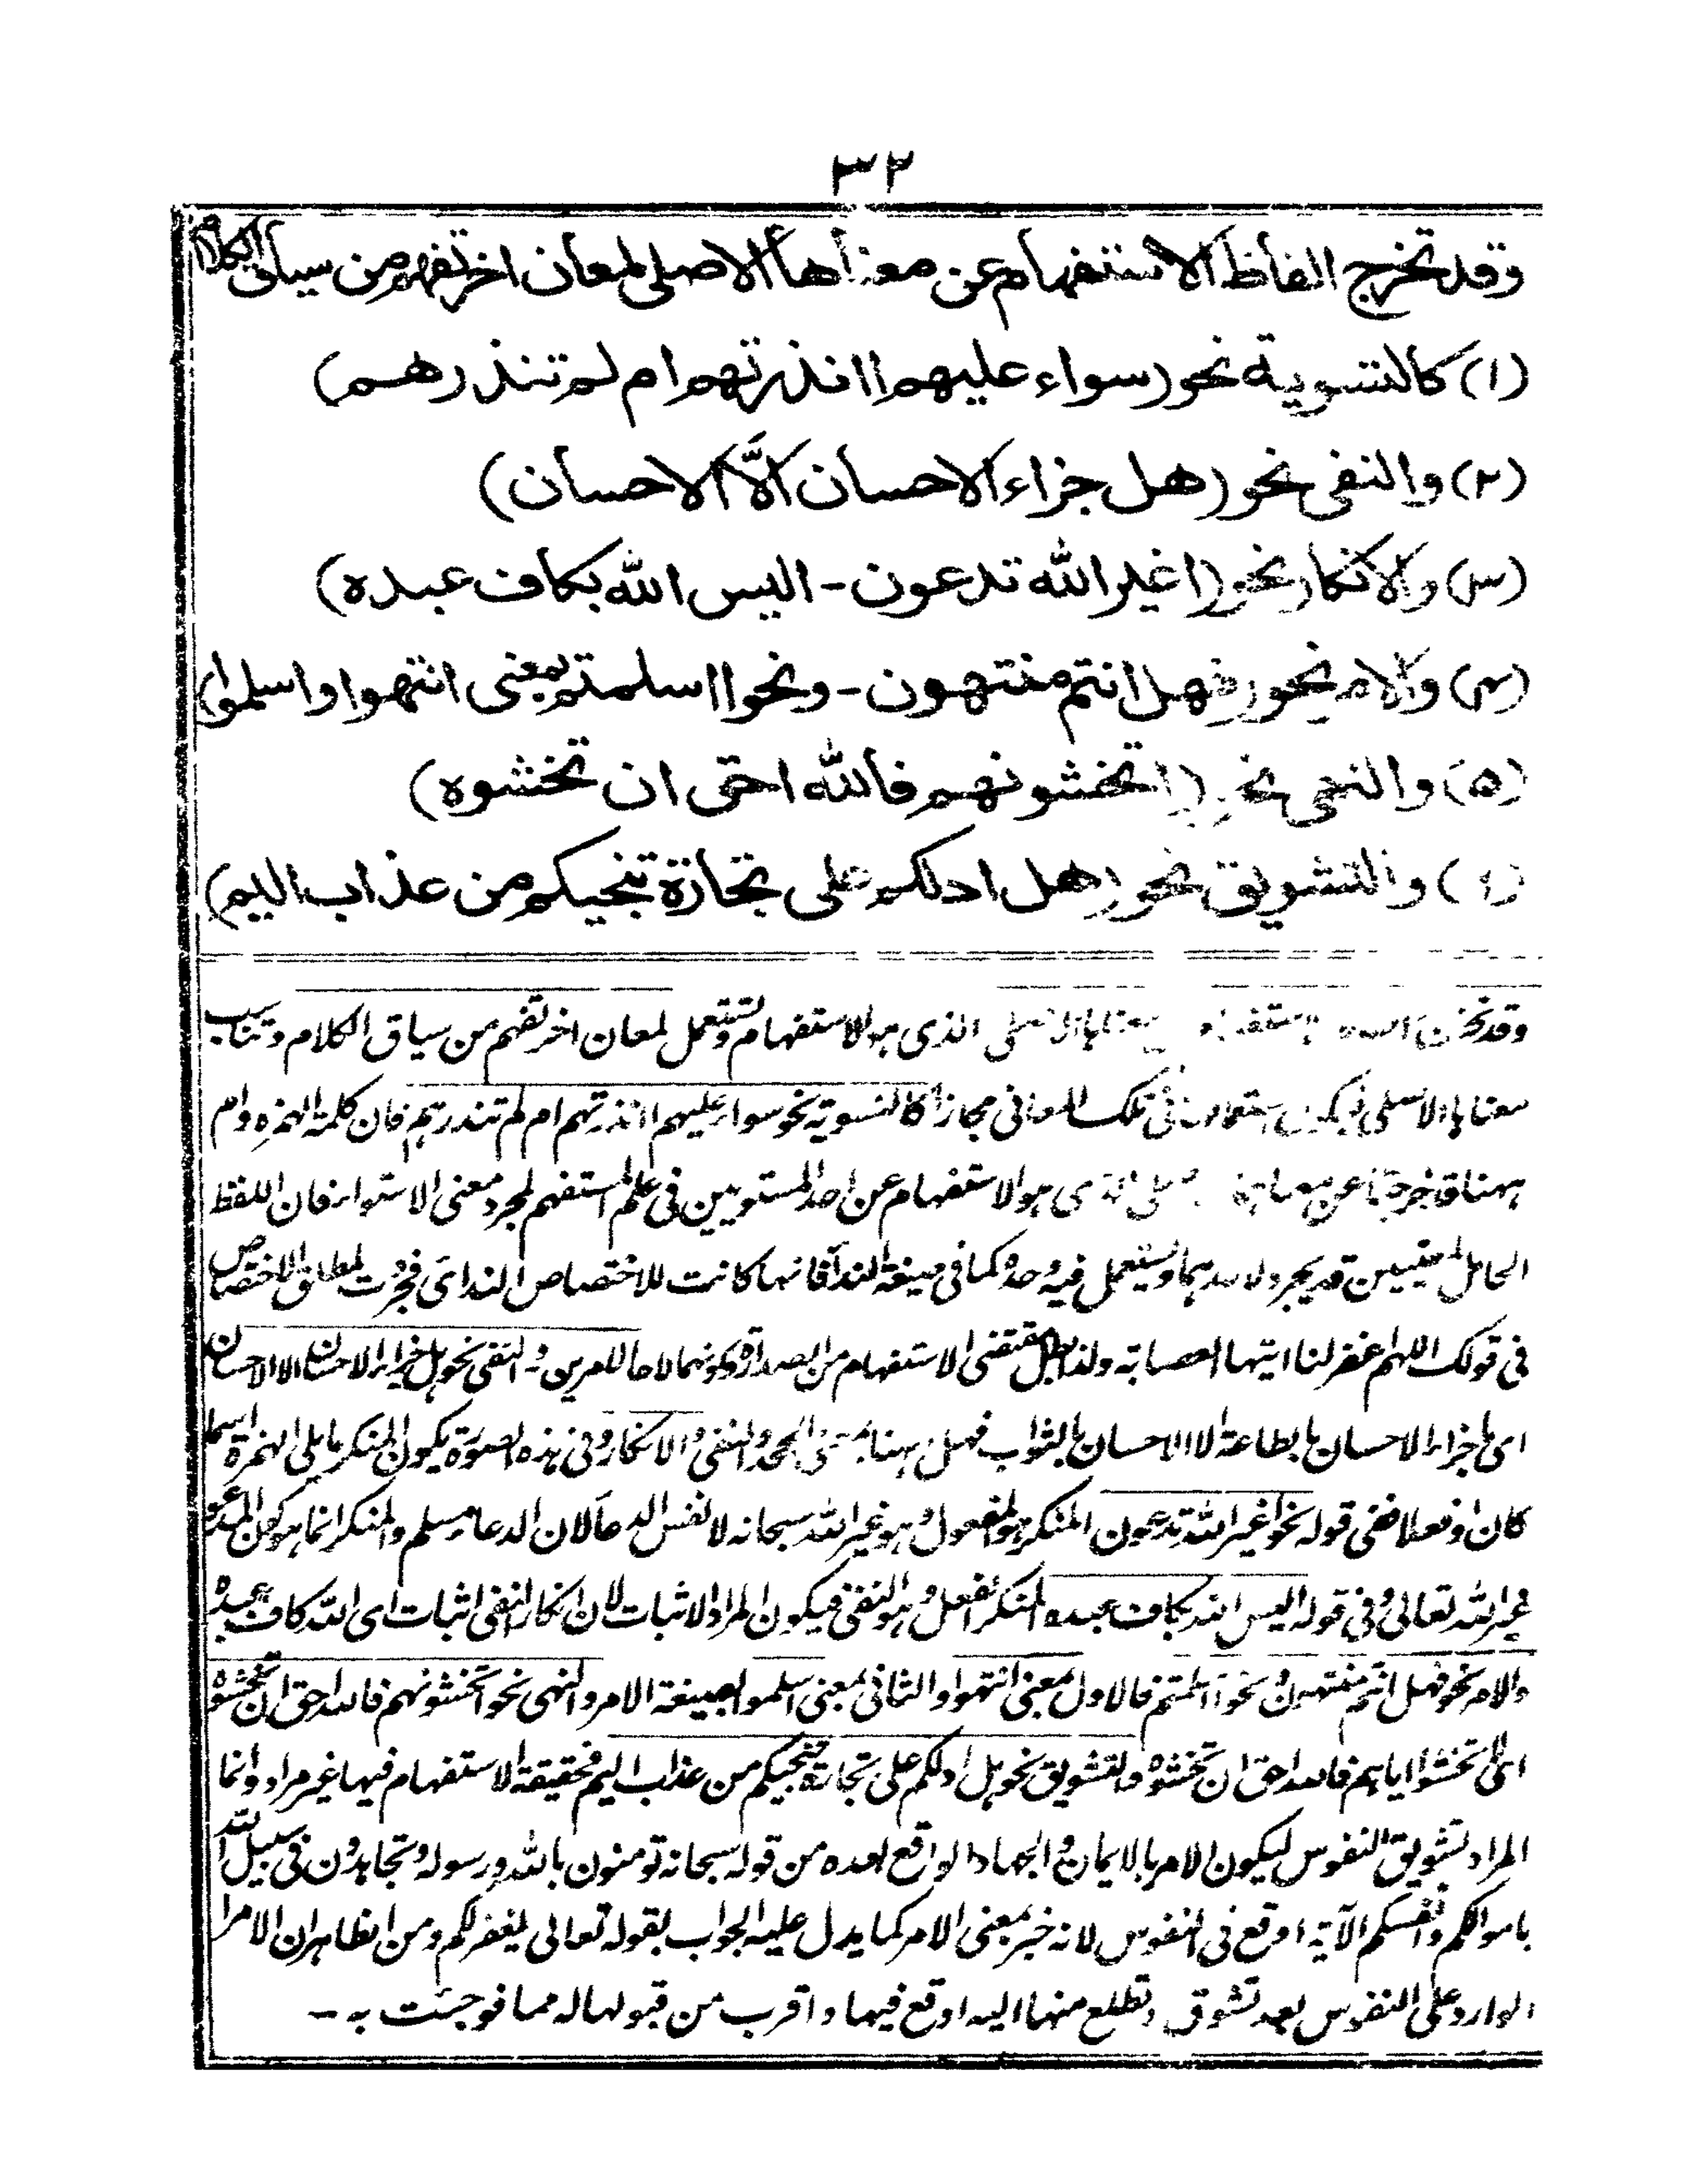 ٣٢
وقد تخرج الفاظ الاستفهام عن معناها الاصلى لمعان اخر تفهم من سياق الكلام
(١) كالتسوية نحو (سواء عليهم اانذرتهم ام لم تنذرهم)
(٢) والنفى نحو (هل جزاء الاحسان الَّا الاحسان)
(٣) والانكار نحو (اغير الله تدعون - اليس الله بكاف عبده)
(٤) والامر نحو (فهل انتم منتهون - ونحو ااسلمتم بمعنى انتهوا واسلموا)
(٥) والنهى نحو (اتخشونهم فالله احق ان تخشوه)
(٦) والتشويق نحو (هل ادلكم على تجارة تنجيكم من عذاب اليم)
وقد تخرج الاستفهام معناها الاصلى الذى هو الاستفهام وتستعمل لمعان اخر تفهم من سياق الكلام وتناسب
معناها الاصلى فيكون فى تلك المعانى مجازا كالتسوية نحو سواء عليهم اانذرتهم ام لم تنذرهم فان كلمة الهمزه وام
ههنا قد خرجتا عن معناها الاصلى الذى هو الاستفهام عن احد المستويين فى علم المستفهم لمجرد معنى الاستواء فان اللفظ
الحامل لمعنيين قد يجرد لاحدهما ويستعمل فيه وحده كما فى صيغة الندآ فانها كانت للاختصاص الندائى فجردت لمطلق الاختصاص
فى قولك اللهم اغفر لنا ايتها العصابة ولذا بطل مقتضى الاستفهام من الصدارة وكونهما لاحد الامرين والنفى نحو هل جزاء الاحسان الا الاحسان
اى ما جزاء الاحسان بالطاعة الا الاحسان بالثواب فهل ههنا بمعنى الجحد والنفى والانكار وفى هذه الصورة يكون المنكر ما يلى الهمزة اسما
كان او فعلا ففى قوله نحو اغير الله تدعون المنكر هو المفعول وهو غير الله سبحانه لا نفس الدعآ لان الدعاء مسلم والمنكر انما هو كون المدعو
غير الله تعالى وفى قوله اليس الله بكاف عبده المنكر الفعل وهو النفى فيكون المراد الاثبات لان انكار النفى اثبات اى الله كاف عبده
والامر نحو فهل انتم منتهون ونحو ااسلمتم فالاول بمعنى انتهوا والثانى بمعنى اسلموا بصيغة الامر والنهى نحو اتخشونهم فالله احق ان تخشوه
اى لا تخشوا اياهم فالله احق ان تخشوه والتشويق نحو هل ادلكم على تجارة تنجيكم من عذاب اليم فحقيقة الاستفهام فيها غير مراد وانما
المراد تشويق النفوس ليكون الامر بالايمان والجهاد الواقع بعده من قوله سبحانه تومنون بالله ورسوله وتجاهدون فى سبيل الله
باموالكم وانفسكم الآية اوقع فى النفوس لانه خبر بمعنى الامر كما يدل عليه الجواب بقوله تعالى يغفر لكم ومن الظاهر ان الامر
الوارد على النفوس بعد تشوق وتطلع منها اليه اوقع فيها واقرب من قبولها له مما فوجئت به -